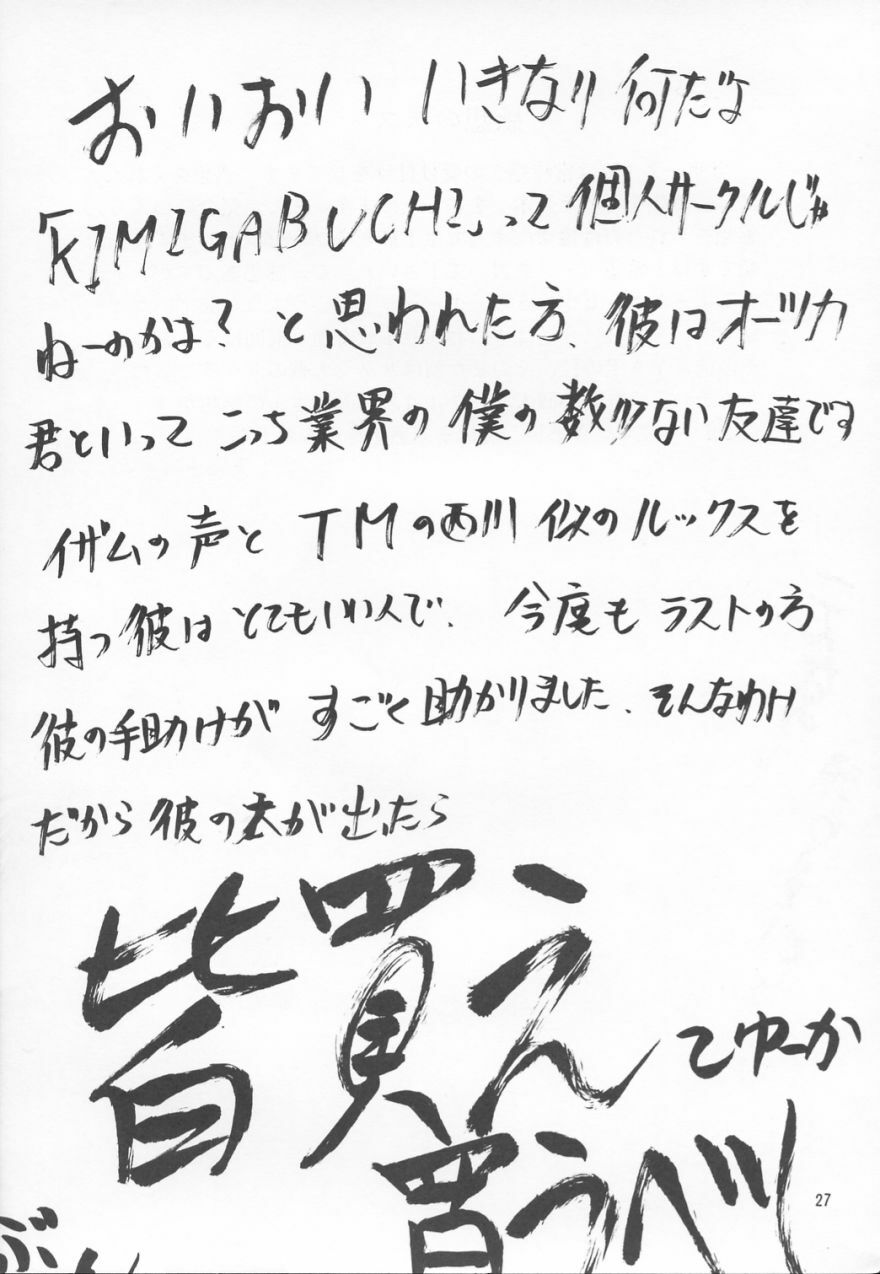 おいおい いきなり 何だよ
「KIMIGABUCHI」って 個人サークルじゃ
ねーのかよ? と思われた方、彼はオーツカ
君といって こっち業界の 僕の 数少ない 友達です
イザムの声と TMの西川 似の ルックスを
持つ彼は とてもいい人で、 今度も ラストの方
彼の手助けが すごく助かりました、そんなわけ
だから 彼の本が出たら
皆買え
てゆーか
買うべし
27